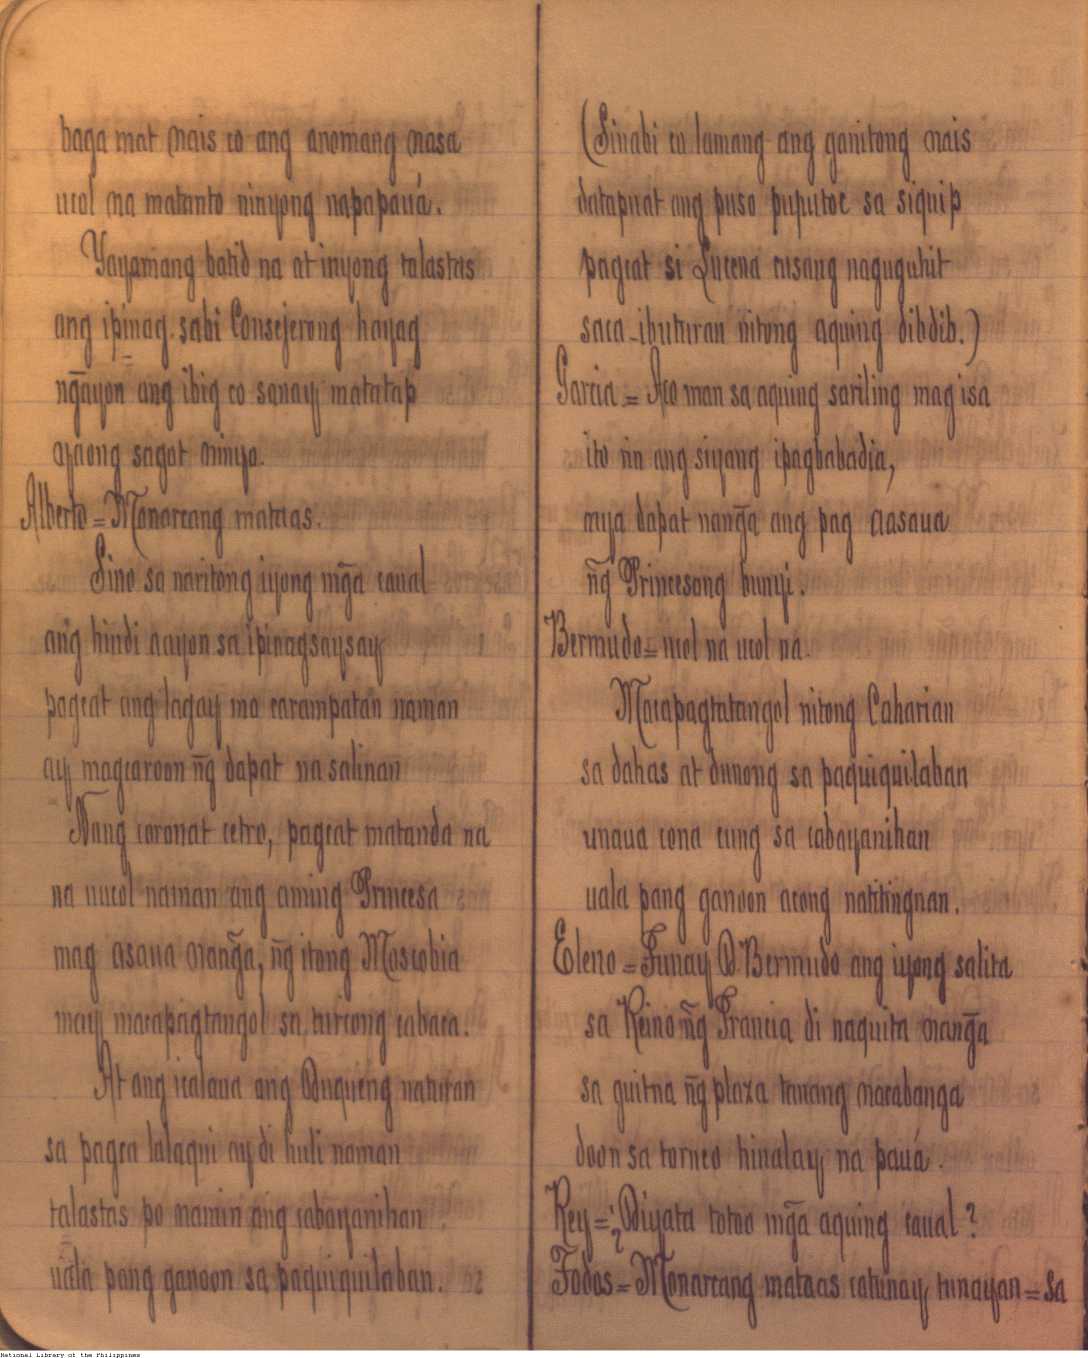 baga mat nais co ang anomang nasa
ucol na matanto ninyong napapauá.
Yayamang batid na at inyong talastas
ang ipinag-sabi Consejerong hayag
ng̃ayon ang ibig co sanay matatap
ayaong sagot ninyo.
Alberto = Monarcang mataas.
Sino sa naritong iyong mg̃a caual
ang hindi aayon sa ipinagsaysay
pagcat ang lagay mo carampatan naman
ay magcaroon ñg dapat na salinan
Nang coronat cetro, pagcat matanda na
na uucol naman ang aming Princesa
mag asaua nang̃a, ñg itong Moscobia
may macapagtangol sa turcong cabaca.
At ang icalaua ang Duqueng naturan
sa pagca lalaqui ay di huli naman
talastas po namin ang cabayanihan
uala pang ganoon sa paquiquilaban.
(Sinabi cu lamang ang ganitong nais
datapuat ang puso puputoc sa siquip
pagcat si Lucena cusang naguguhit
saca-ibuturan nitong aquing dibdib.)
Garcia = Aco man sa aquing sariling mag isa
ito rin ang siyang ipagbabadia,
mya dapat nang̃a ang pag aasaua
ñg Princesang bunyi.
Bermudo = ucol na ucol na.
Macapagtatangol nitong Caharian
sa dahas at dunong sa paquiquilaban
unaua cona cung sa cabayanihan
uala pang ganoon acong natitingnan.
Eleno = Tunay D. Bermudo ang iyong salita
sa Reino ñg Francia di naquita nang̃a
sa guitna ñg plaza tanang nacabanga
doon sa torneo hinalay na pauá.
Rey = ¿Diyata totoo mg̃a aquing caual?
Todos = Monarcang mataas catunay tunayan = Sa
National Library of the Philippines